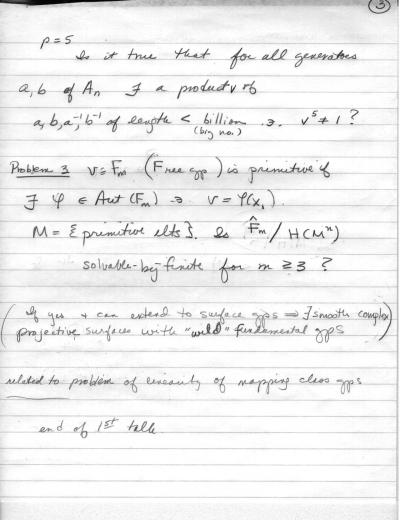 3
p = 5
Is it true that for all generators
a, b of Aₙ ∃ a product v of
a, b, a⁻¹, b⁻¹ of length < billion .∋. v⁵ ≠ 1 ?
(big no.)
Problem 3 v ∈ Fₘ (Free gp) is primitive if
∃ φ ∈ Aut (Fₘ) ∋ v = φ(x₁).
M = { primitive elts }. Is F̂ₘ / H(Mⁿ)
solvable-by-finite for m ≥ 3 ?
(If yes + can extend to surface gps ⇒ ∃ smooth complex
projective surfaces with "wild" fundamental gps)
related to problem of linearity of mapping class gps
end of 1st talk.